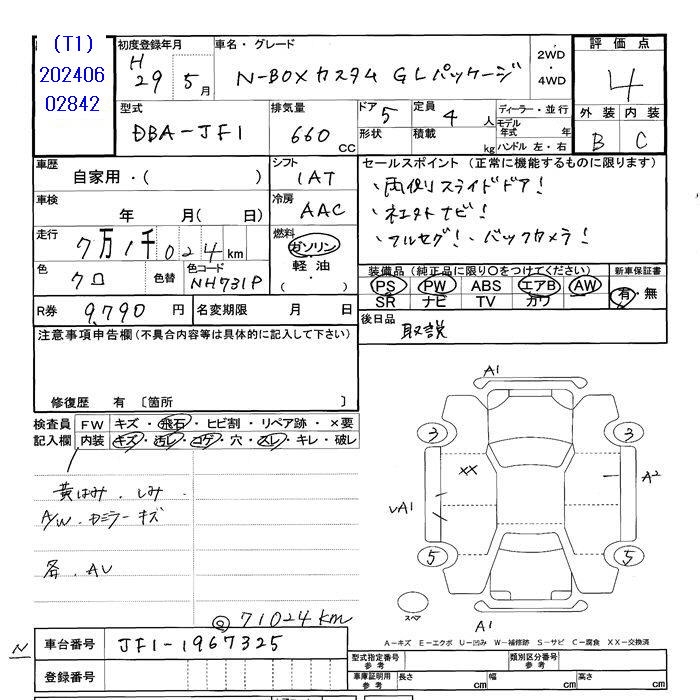 (T1)
202406
02842
初度登録年月
H
29 5月
車名・グレード
N-BOXカスタム GLパッケージ
2WD
・
4WD
評価点
4
外装 内装
B C
型式
DBA-JF1
排気量
660 CC
ドア 5
形状
定員 4 人
積載 kg
ディーラー・並行
モデル年式 年
ハンドル 左・右
車歴
自家用・( )
シフト
IAT
車検
年 月( 日)
冷房
AAC
走行
7万1千024km
燃料
ガソリン
軽油
色
クロ
色替
色コード
NH731P
R券 9,790 円
名変期限 月 日
セールスポイント (正常に機能するものに限ります)
・両側スライドドア!
・ネエクトナビ!
・フルセグ!・バックカメラ!
装備品 (純正品に限り○をつけてください)
新車保証書
PS PW ABS エアB AW
SR ナビ TV カワ
有・無
後日品
取説
注意事項申告欄 (不具合内容等は具体的に記入して下さい)
修復歴 有 〔箇所 〕
検査員 FW キズ・飛石・ヒビ割・リペア跡・×要
記入欄 内装 キズ・汚レ・コゲ・穴・スレ・キレ・破レ
黄ばみ.しみ.
A/W.カミラーキズ
各.AU
@71024km
A1
3 3
XX
A2
A1
5 5
スペア
A1
A－キズ E－エクボ U－凹み W－補修跡 S－サビ C－腐食 XX－交換済
N
車台番号 JF1-1967325
登録番号
型式指定番号
参考
類別区分番号
参考
車庫証明用
参考
長さ cm 幅 cm 高さ cm